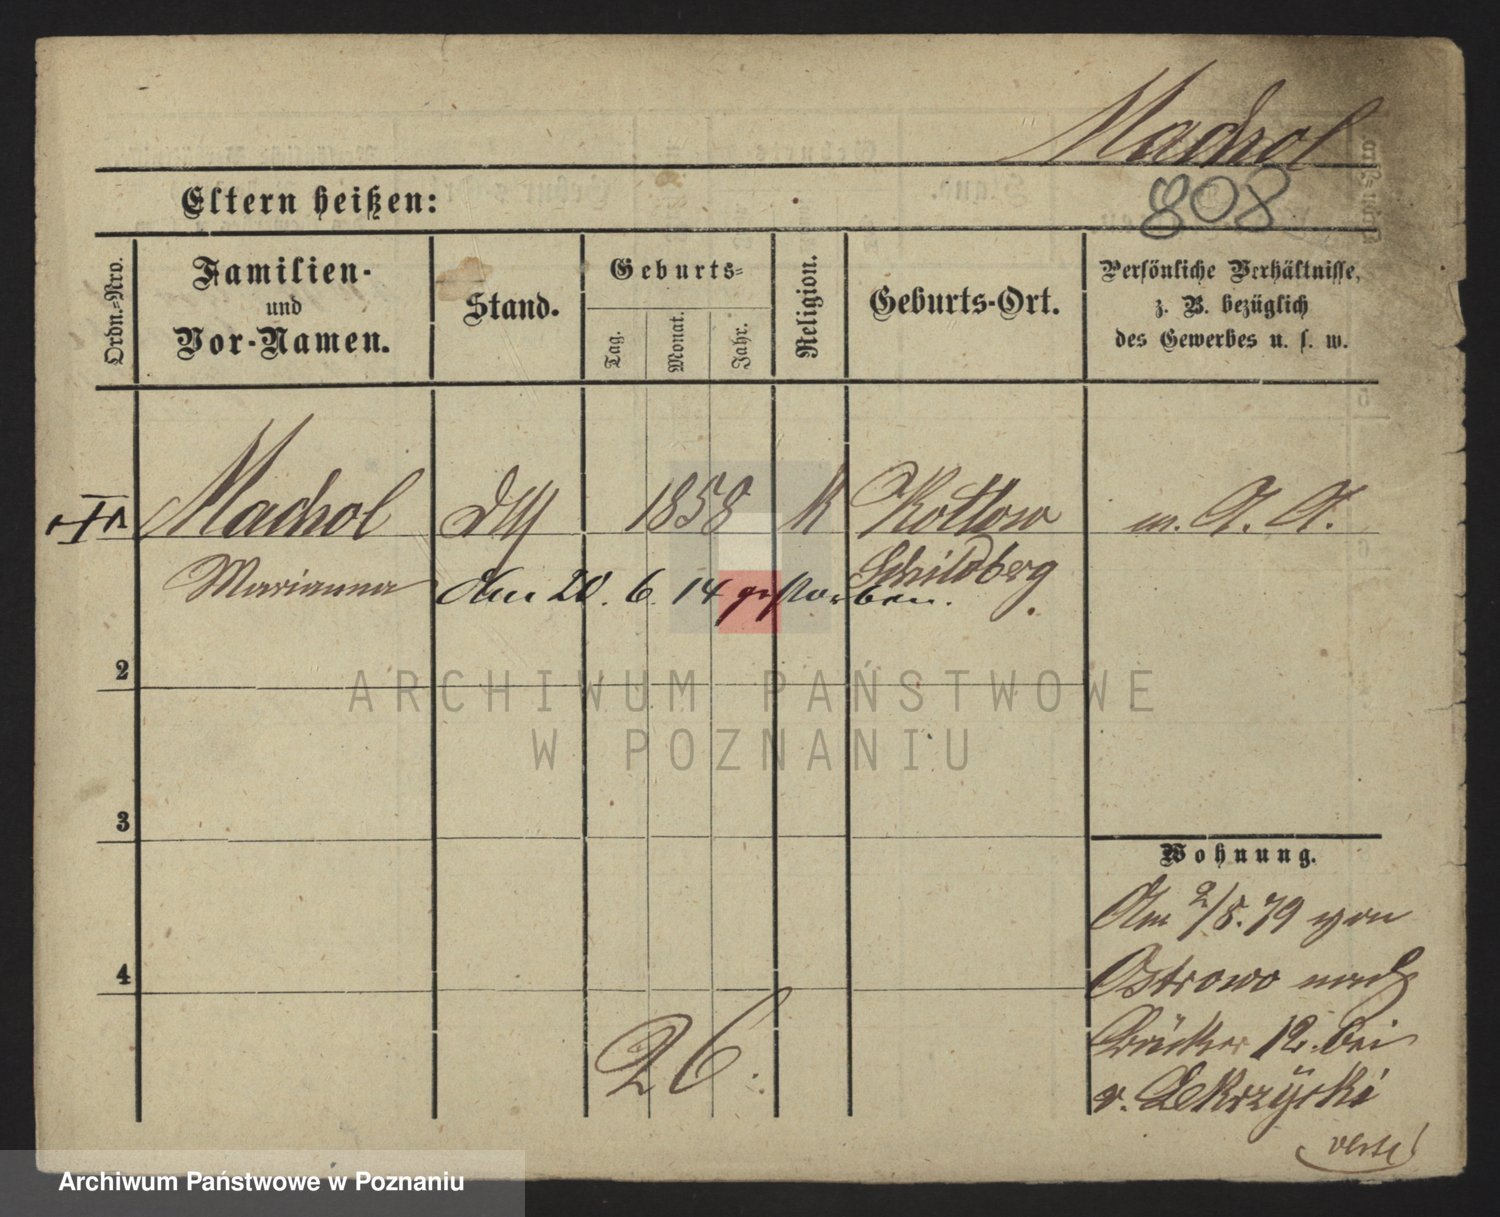 Machol
Eltern heißen:
808
Ordn.-Nro.
Familien-
und
Vor-Namen.
Stand.
Geburts-
Tag.
Monat.
Jahr.
Religion.
Geburts-Ort.
Persönliche Verhältnisse,
z. B. bezüglich
des Gewerbes u. s. w.
Machol
1858
K
Kotlow
Marianna
Schildberg
Am 20. 6. 14 gestorben.
2
ARCHIWUM PAŃSTWOWE
W POZNANIU
3
Wohnung.
Am 2/8. 79 von
4
Ostrowo nach
26.
Bäcker 12. bei
v.
verte!
Archiwum Państwowe w Poznaniu